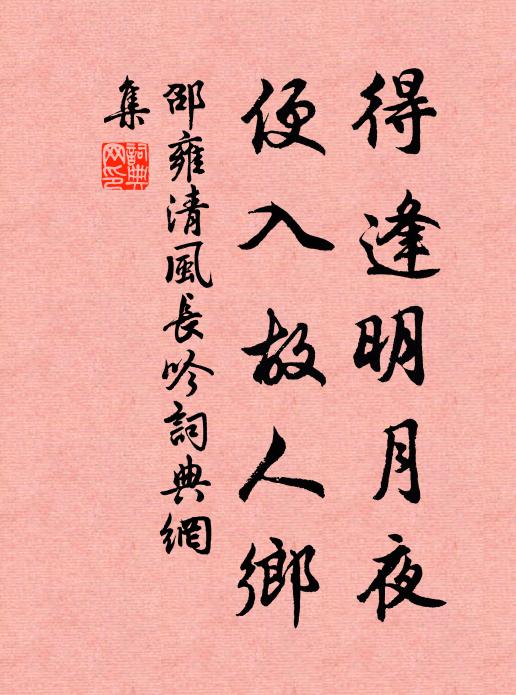 得逢明月夜
便入故人鄉
邵雍清風長吟詞典網
集
詞典
网印